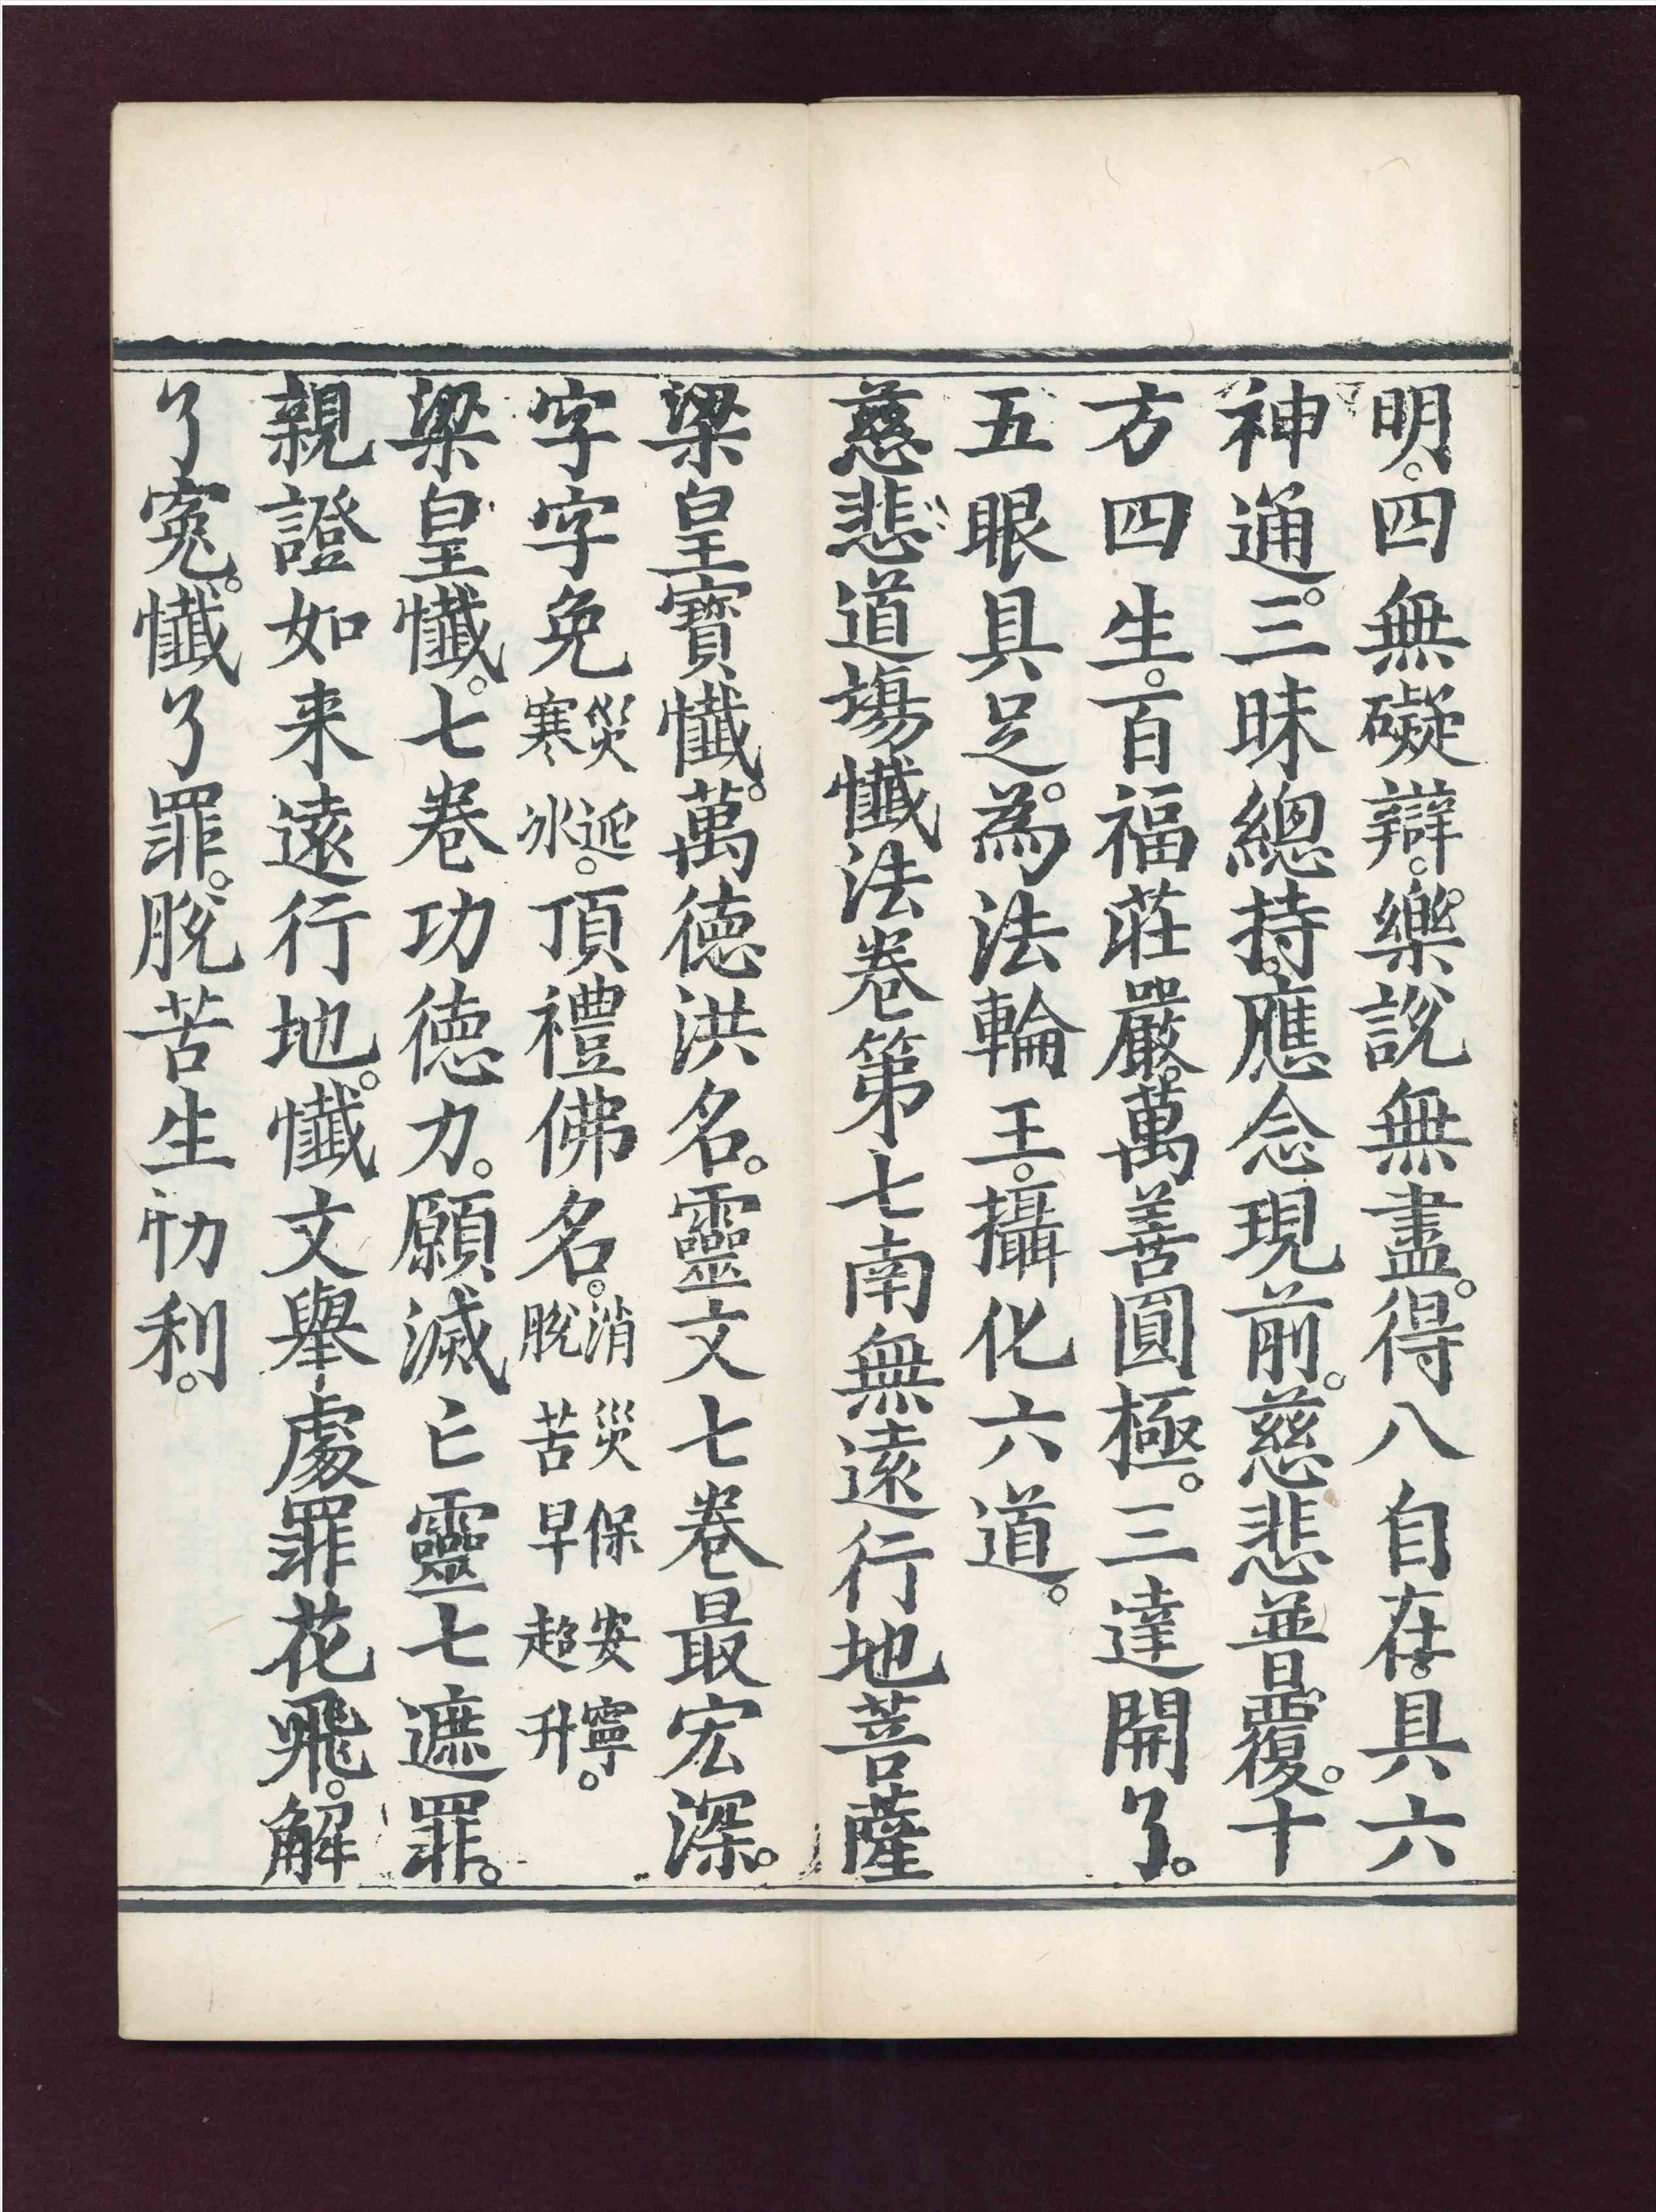 明。四無礙辯。樂說無盡。得八自在。具六
神通。三昧總持。應念現前。慈悲普覆。十
方四生。百福莊嚴。萬善圓極。三達開了。
五眼具足。為法輪王。攝化六道。
慈悲道場懺法卷第七南無遠行地菩薩
梁皇寶懺。萬德洪名。靈文七卷最宏深。
字字免災迍。頂禮佛名。消災保安寧。
寒冰。脫苦早超升。
梁皇懺。七卷功德力。願滅亡靈七遮罪。
親證如来遠行地。懺文舉處罪花飛。解
了冤。懺了罪。脫苦生忉利。